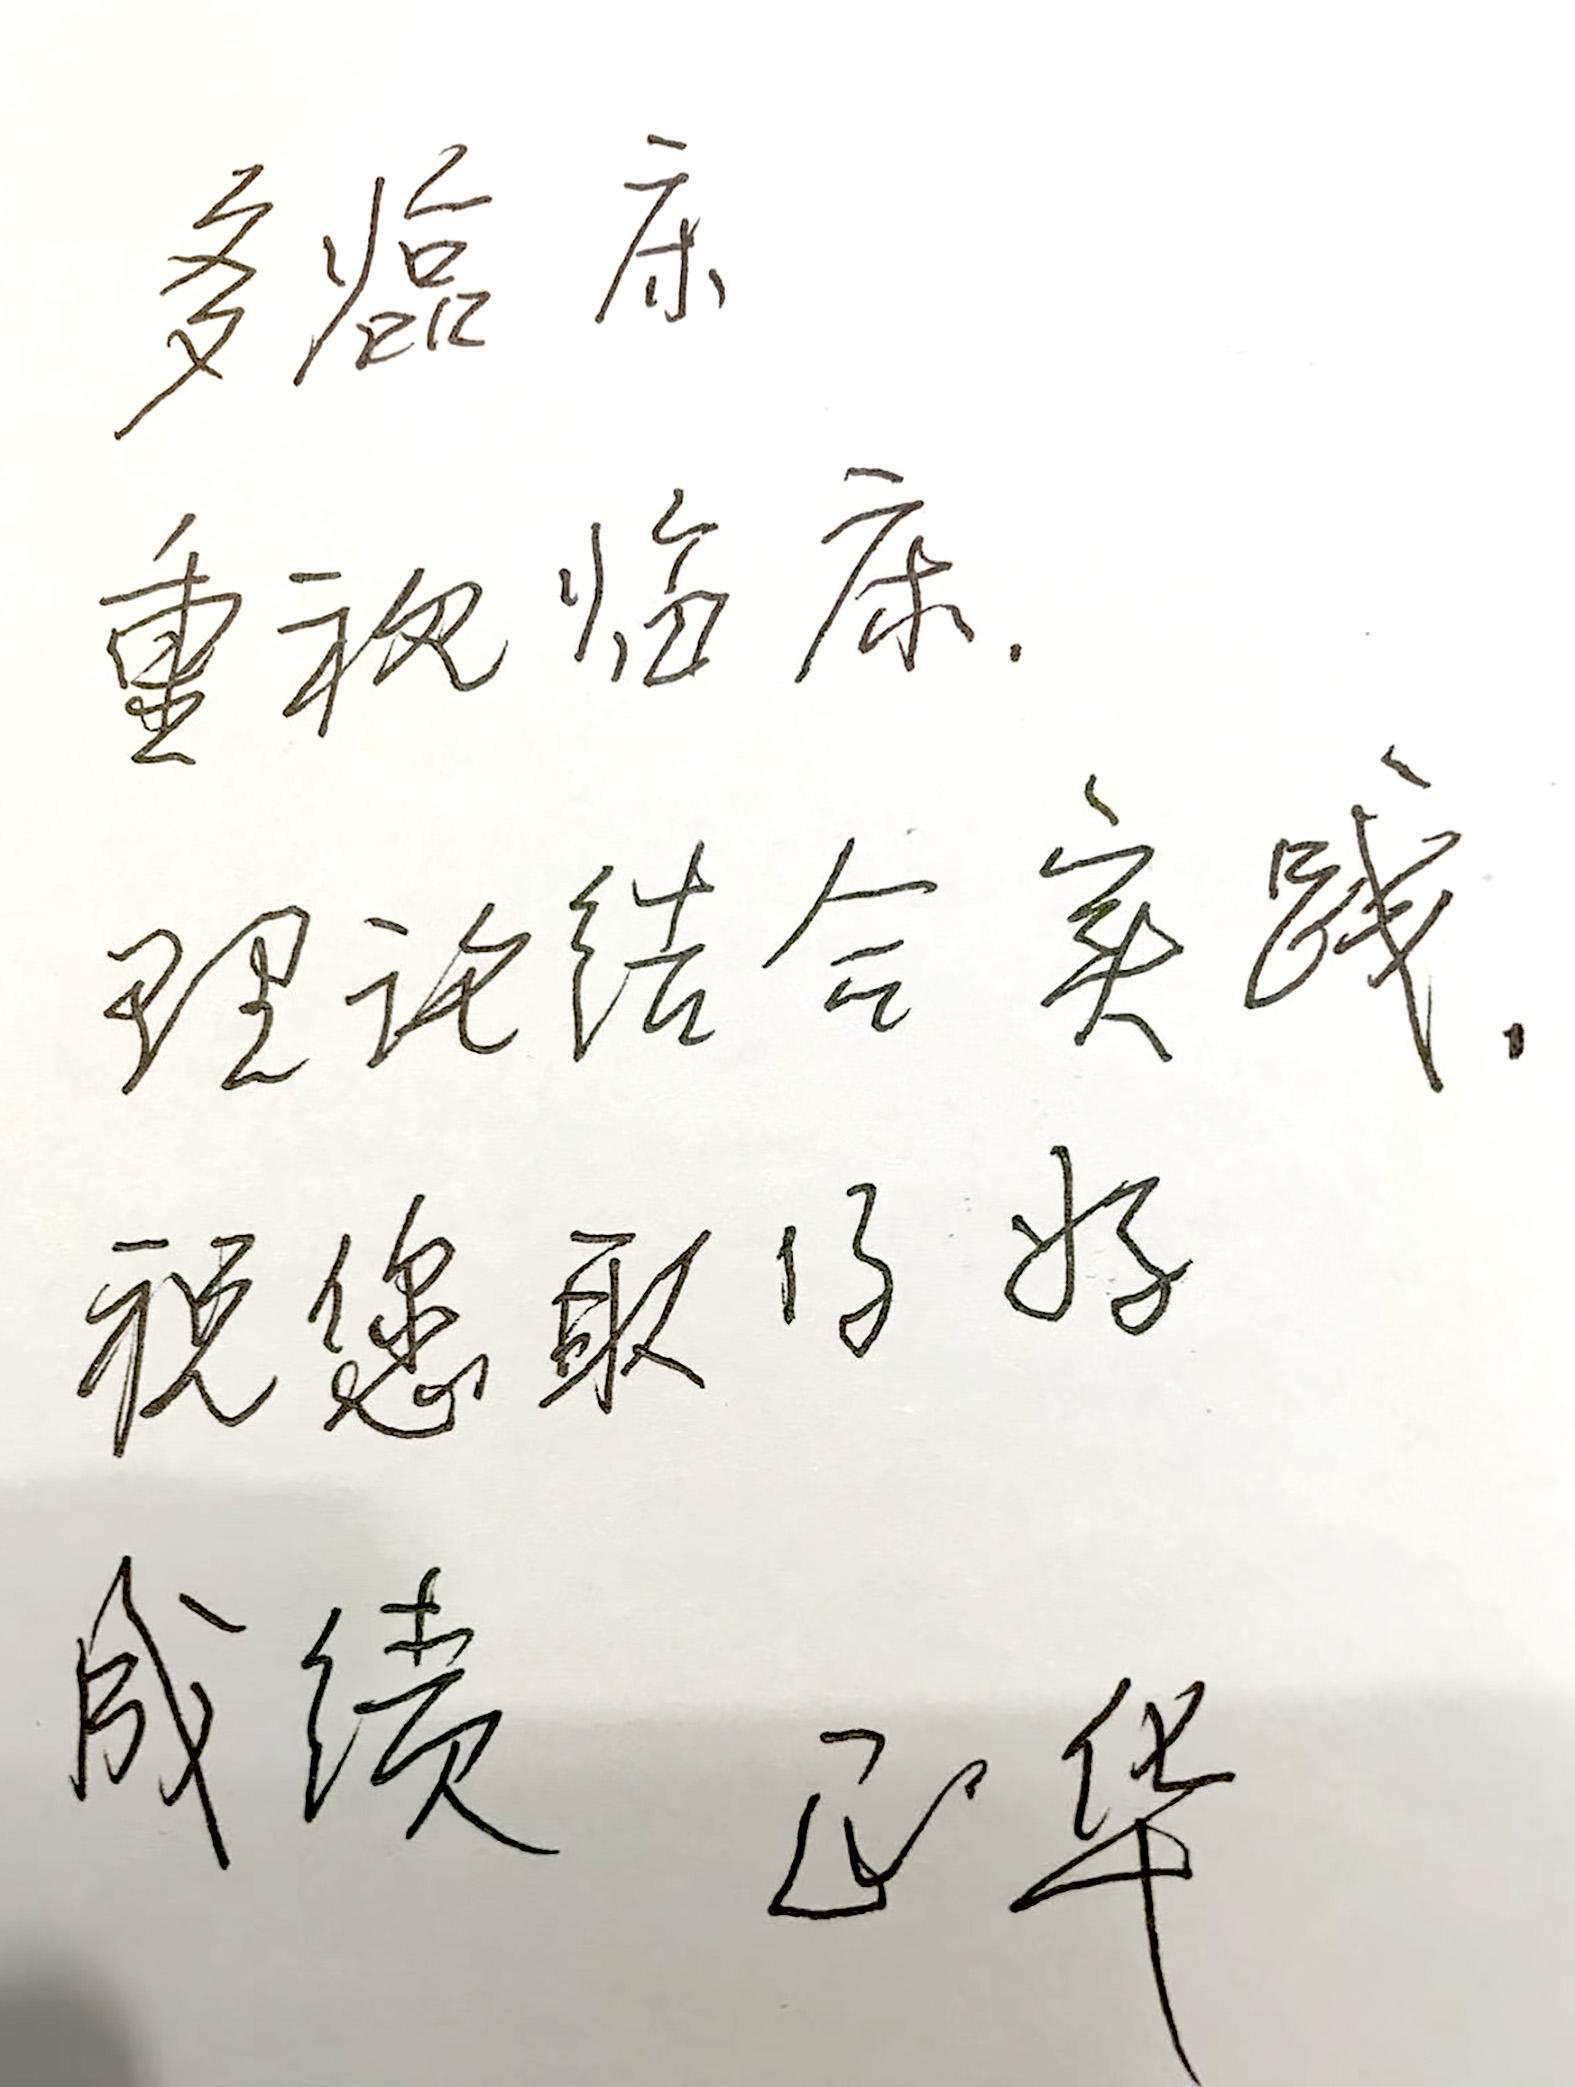 多临床
重视临床.
理论结合实践.
祝您取得好
成绩
正华